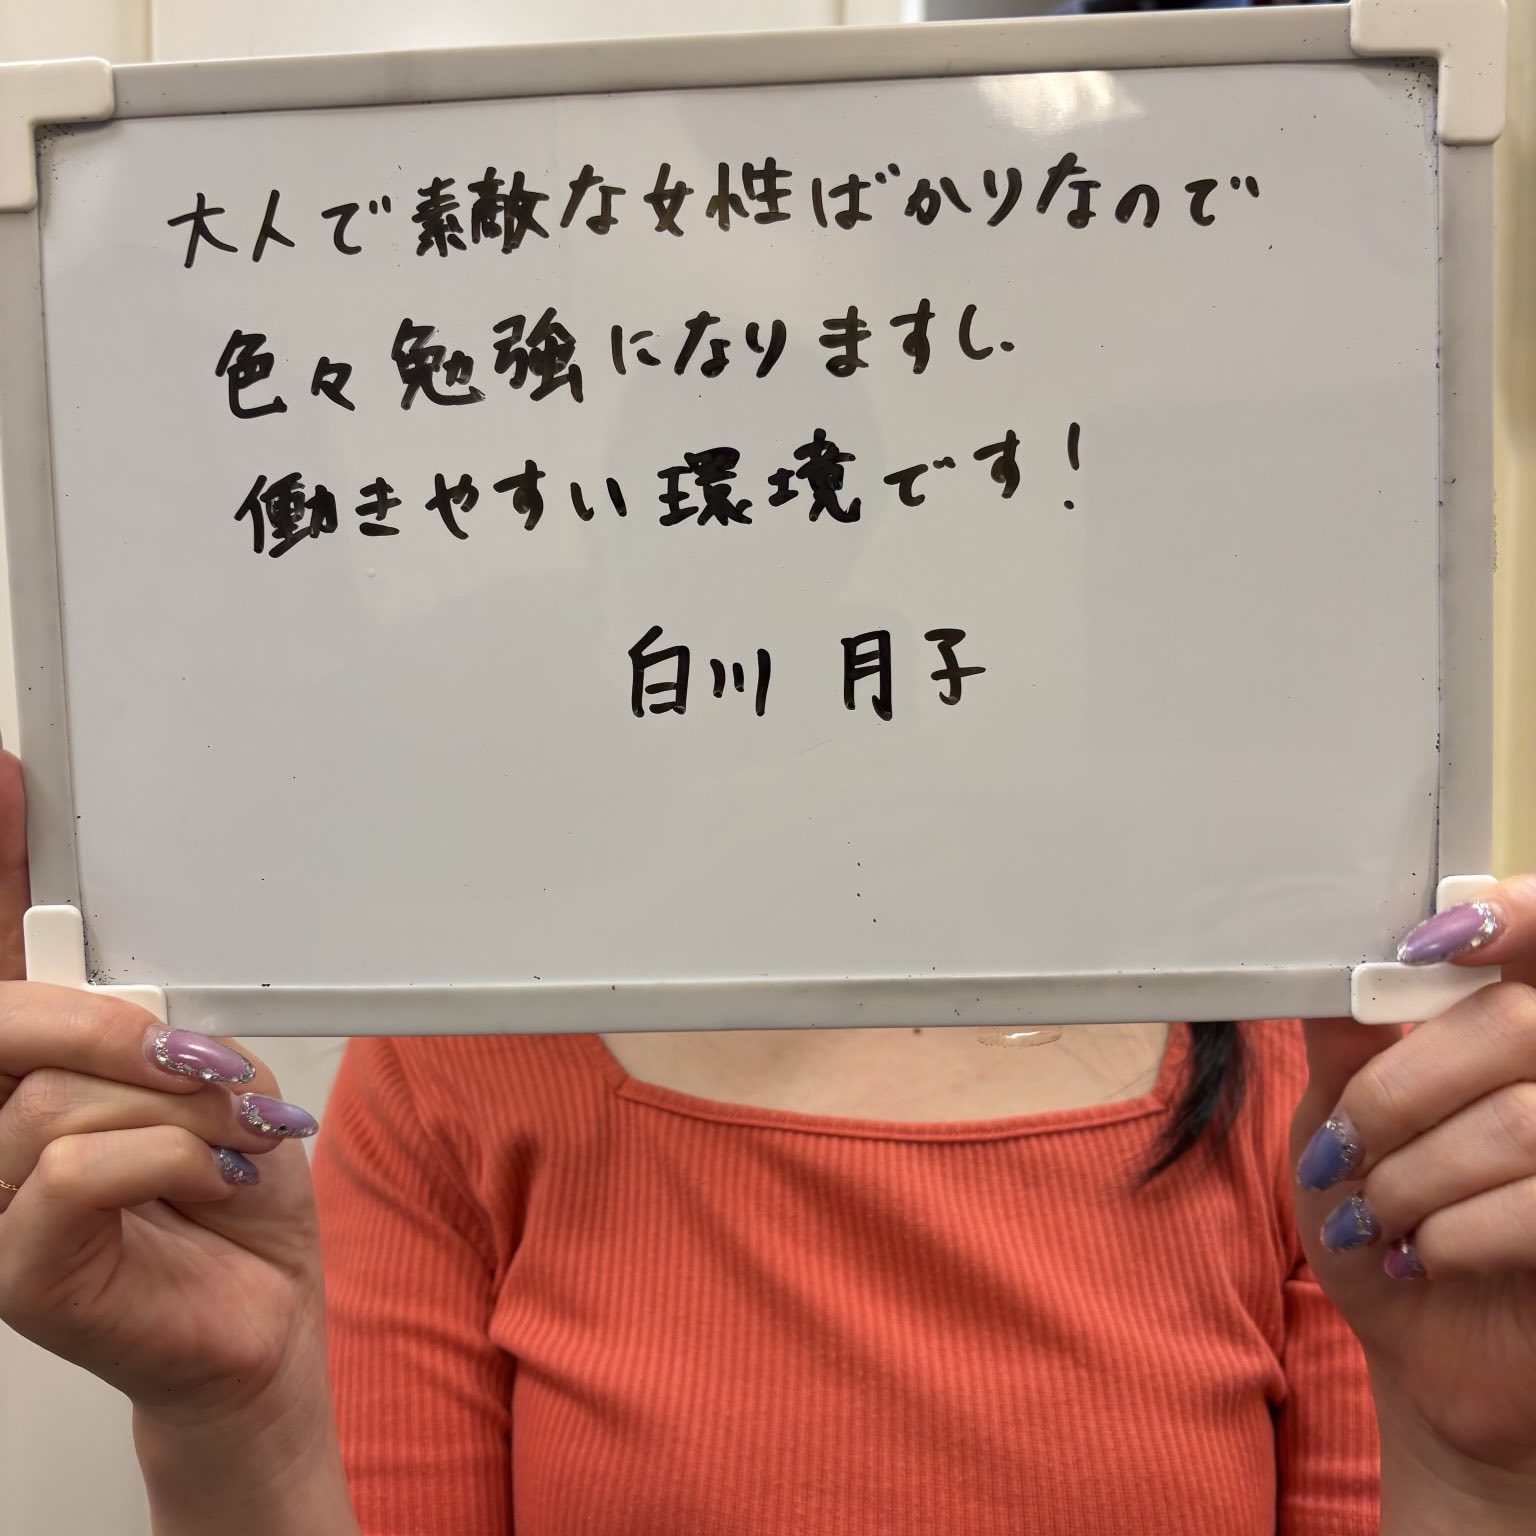 大人で素敵な女性ばかりなので
色々勉強になりますし、
働きやすい環境です！
白川 月子